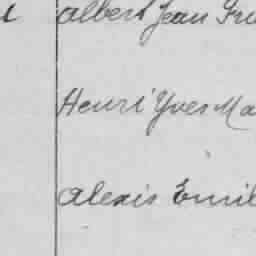 Albert Jean
Henri Yves Ma
Alexis Emil